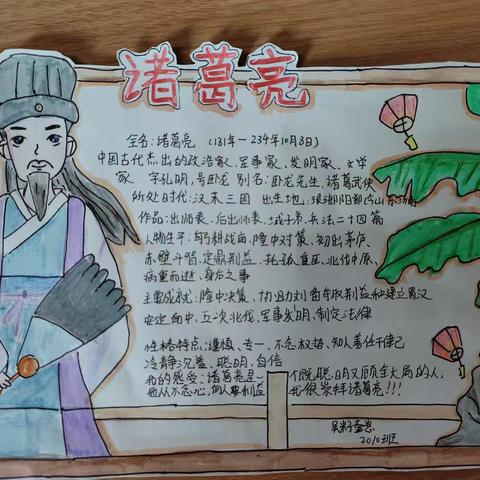 诸葛亮
全名:诸葛亮 (181年-234年10月8日)
中国古代杰出的政治家、军事家、发明家、文学
家 字孔明,号卧龙 别名:卧龙先生、诸葛武侯
所处时代:汉末三国 出生地:琅琊阳都今山东
作品:出师表、后出师表、诫子书、兵法二十四篇
人物生平:躬耕 隆中对策、初出茅庐、
赤壁斗智、定鼎荆益、托孤 北伐中原、
病重而逝、身后之事
主要成就:隆中决策、协助刘备夺取荆益和建立蜀汉
安定南中,五次北伐,军事发明,制定法律
性格特点:谨慎、专一、不念权势、知人善任于律己
冷静沉着、聪明、自信
我的感受:诸葛亮是 既聪明又顾全大局的人,
他从不 利益 我很崇拜诸葛亮!!!
2010班